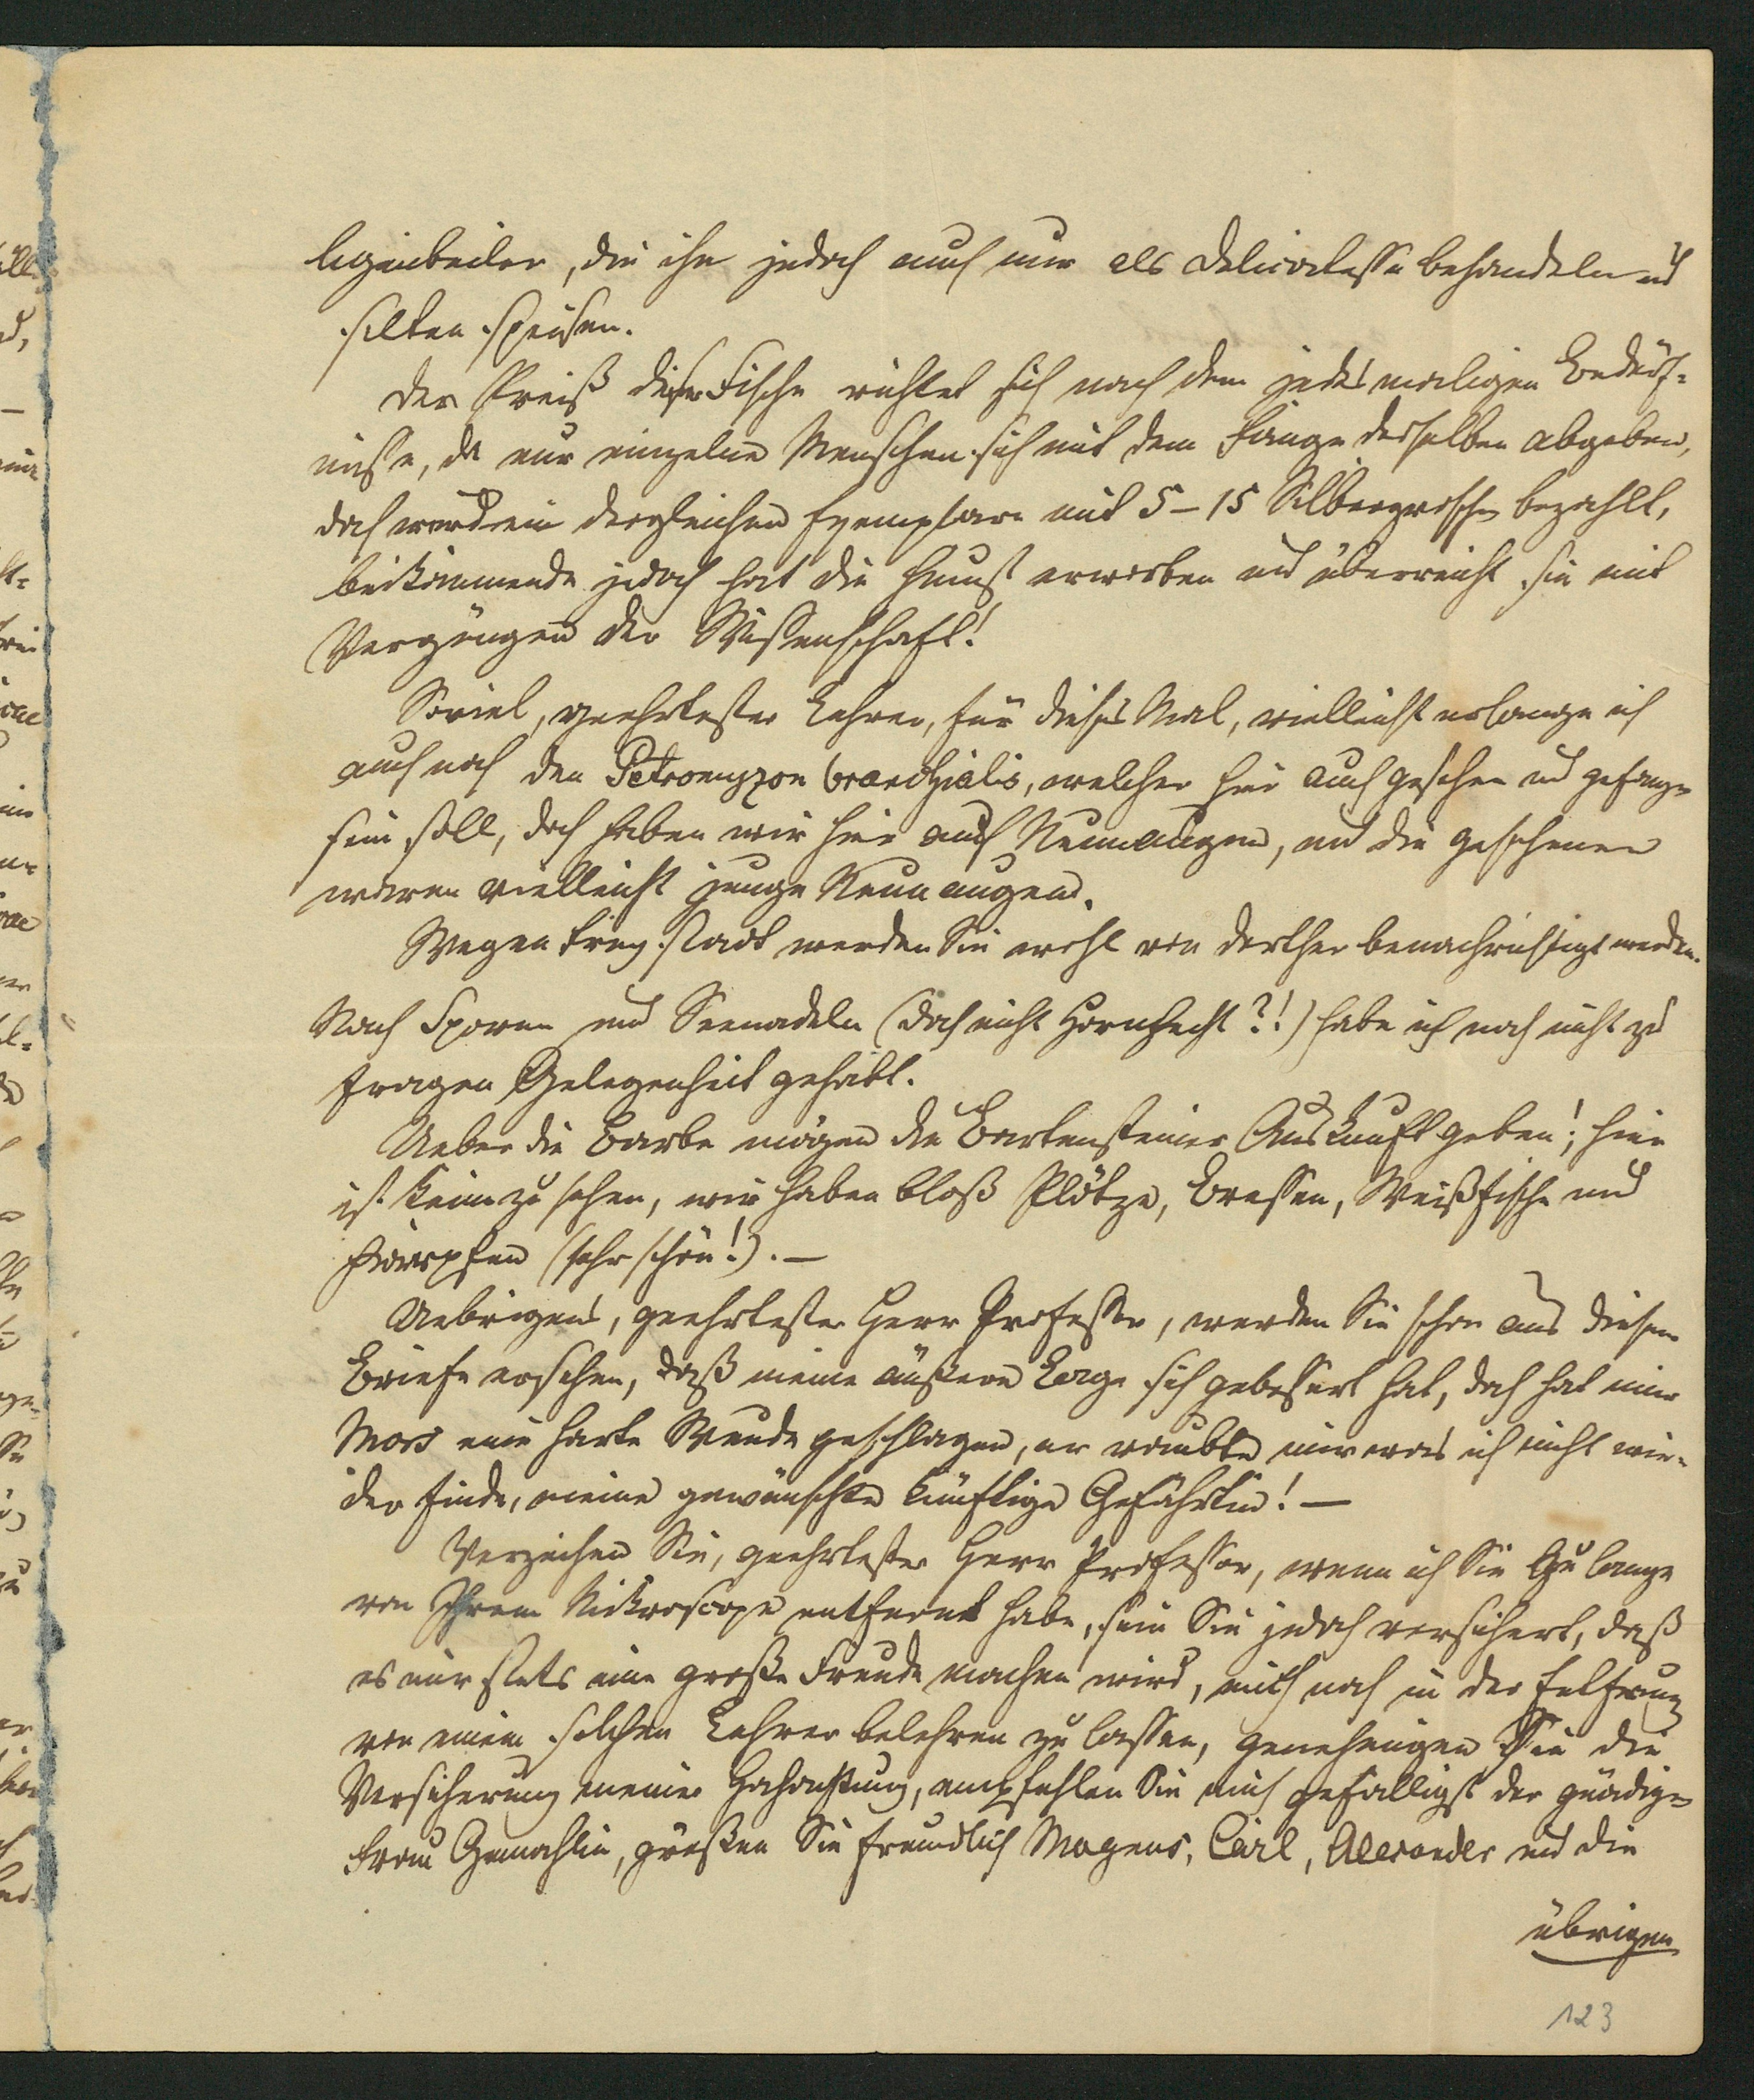 ligenbeiler, die ihn jedoch auch nur als Delicatesse behandeln und
selten speisen.
Der Preiß dieser Fische richtet sich nach dem jedesmaligen Bedürf-
nisse, da nur einzelne Menschen sich mit dem Fange desselben abgeben,
doch werden dergleichen Exemplare mit 5-15 Silbergroschen bezahlt,
beikommende jedoch hat die Kunst erworben und überreicht sie mit
Vergnügen der Wissenschaft!
Soviel, geehrtester Lehrer, für dieses Mal, vielleicht erlange ich
auch noch den Petromyzon branchialis, welcher hier auch gesehen und gefangen
sein soll, doch haben wir hier auch Neunaugen, und die gesehenen
waren vielleicht junge Neunaugen.
Wegen Freystadt werden Sie wohl von dorther benachrichtigt werden.
Nach Sporen und Seenadeln (doch nicht Hornhecht?!) habe ich noch nicht zu
fragen Gelegenheit gehabt.
Ueber die Barbe mögen die Bartensteiner Auskunft geben!; hier
ist keine zu sehen, wir haben bloß Plötze, Bressen, Weißfische und
Karpfen (sehr schön!). —
Uebrigens, geehrtester Herr Professor, werden Sie schon aus diesem
Briefe ersehen, daß meine äußere Lage sich gebessert hat, doch hat mir
Mars eine harte Wunde geschlagen, er raubte mir was ich nicht wie-
der finde, meine gewünschte künftige Gefährtin! —
Verzeihen Sie, geehrtester Herr Professor, wenn ich Sie zu lange
von Ihrem Mikroscope entfernt habe, sein Sie jedoch versichert, daß
es mir stets eine große Freude machen wird, mich noch in der Entfernung
von einem solchen Lehrer belehren zu lassen, genehmigen Sie die
Versicherung meiner Hochachtung, empfehlen Sie mich gefälligst der gnädigen
Frau Gemahlin, grüßen Sie freundlich Magnus, Carl, Alexander und die
übrigen
123